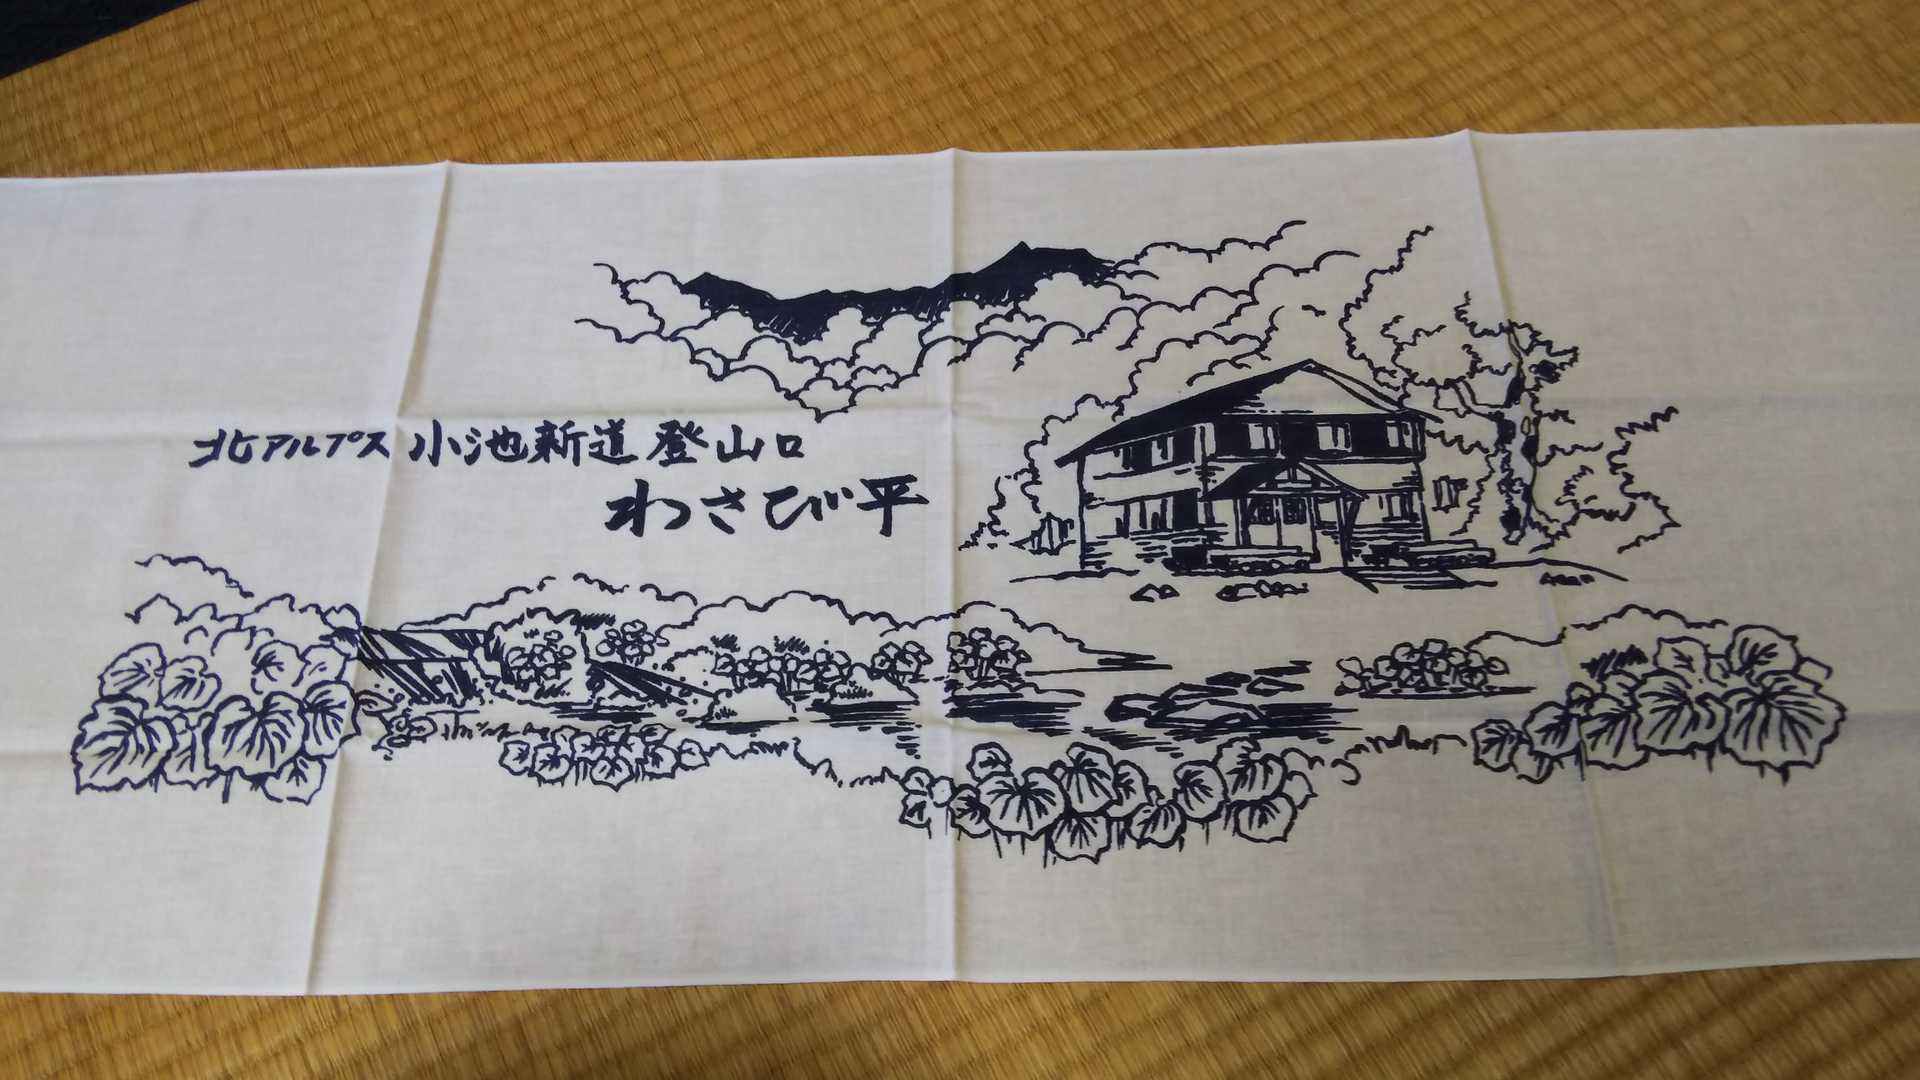 北アルプス 小池新道 登山口
わさび平